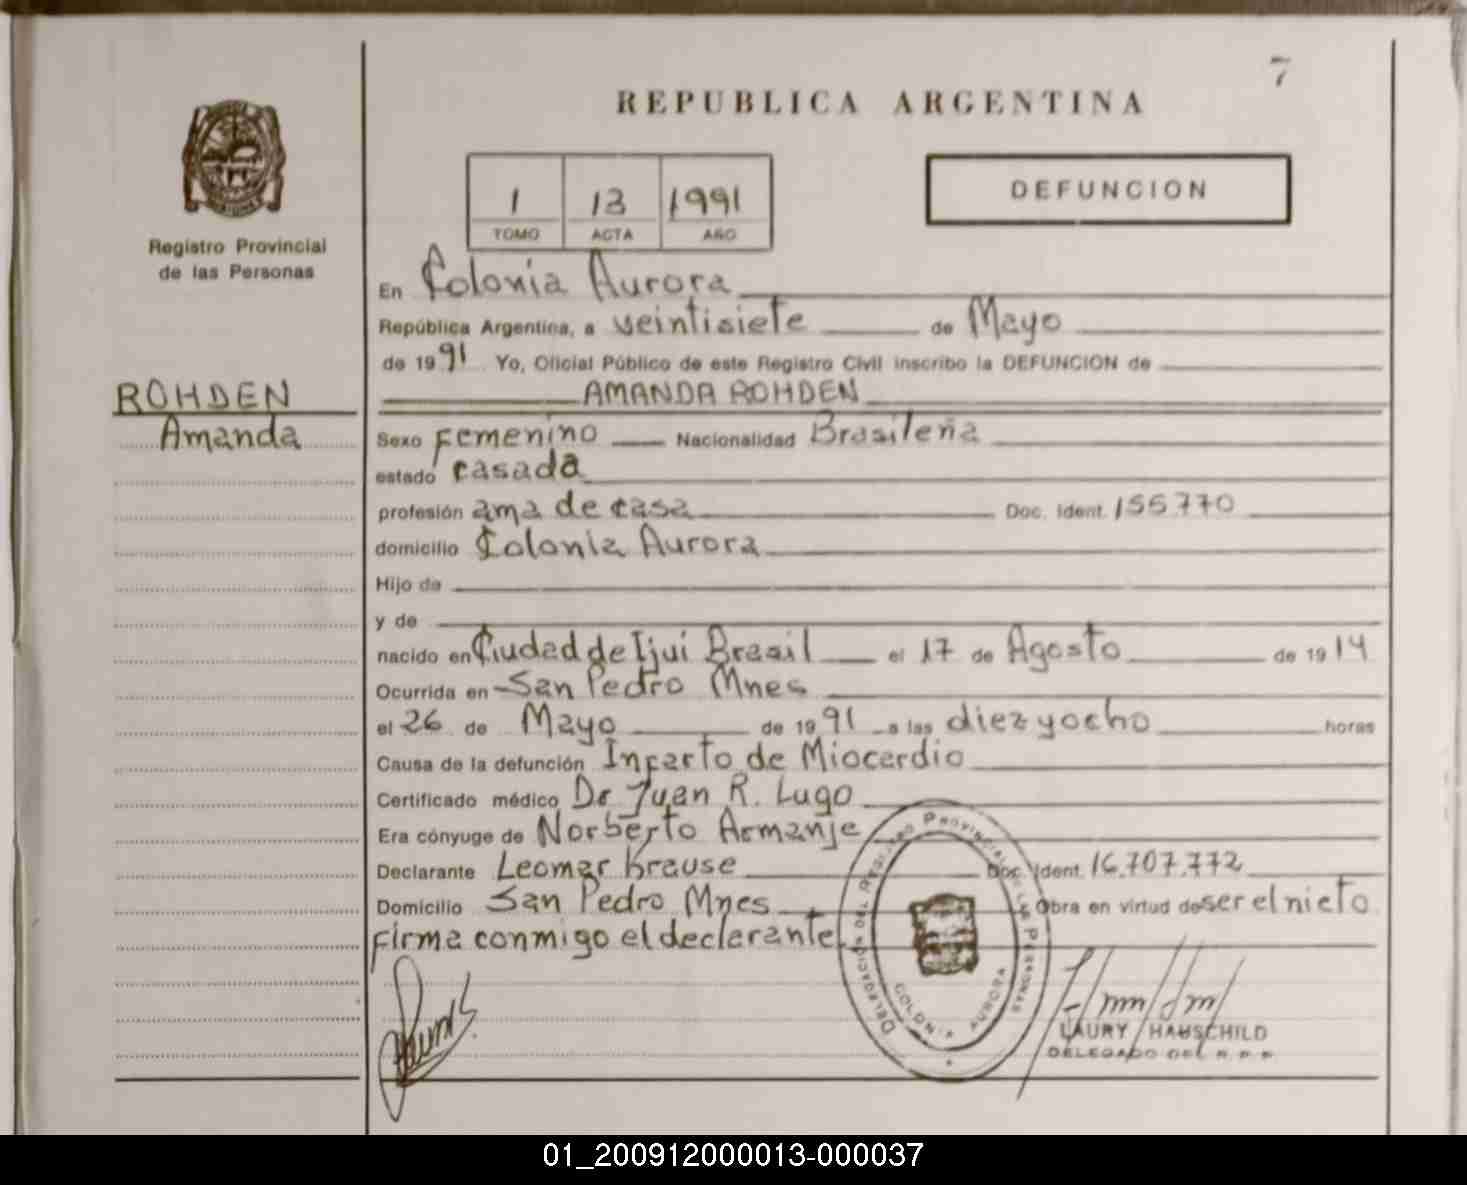 7
REPUBLICA ARGENTINA
1 13 1991
TOMO ACTA AÑO
DEFUNCION
Registro Provincial
de las Personas
En Colonia Aurora
República Argentina, a veintisiete de Mayo
de 1991 Yo, Oficial Público de este Registro Civil inscribo la DEFUNCION de
ROHDEN
AMANDA ROHDEN
Amanda
Sexo Femenino Nacionalidad Brasileña
estado casada
profesión ama de casa Doc. Ident. 155770
domicilio Colonia Aurora
Hijo de
y de
nacido en Ciudad de Ijui Brasil el 17 de Agosto de 1914
Ocurrida en San Pedro Mnes
el 26 de Mayo de 1991 a las diez y ocho horas
Causa de la defunción Infarto de Miocardio
Certificado médico Dr Juan R. Lugo
Era cónyuge de Norberto Armanje
Declarante Leomar Krause Doc. Ident. 16.707.772
Domicilio San Pedro Mnes Obra en virtud de ser el nieto
firma conmigo el declarante
DELEGACION DEL REGISTRO PROVINCIAL DE LAS PERSONAS
COLONIA AURORA
LAURY HAUSCHILD
DELEGADO DEL R.P.P.
01_200912000013-000037